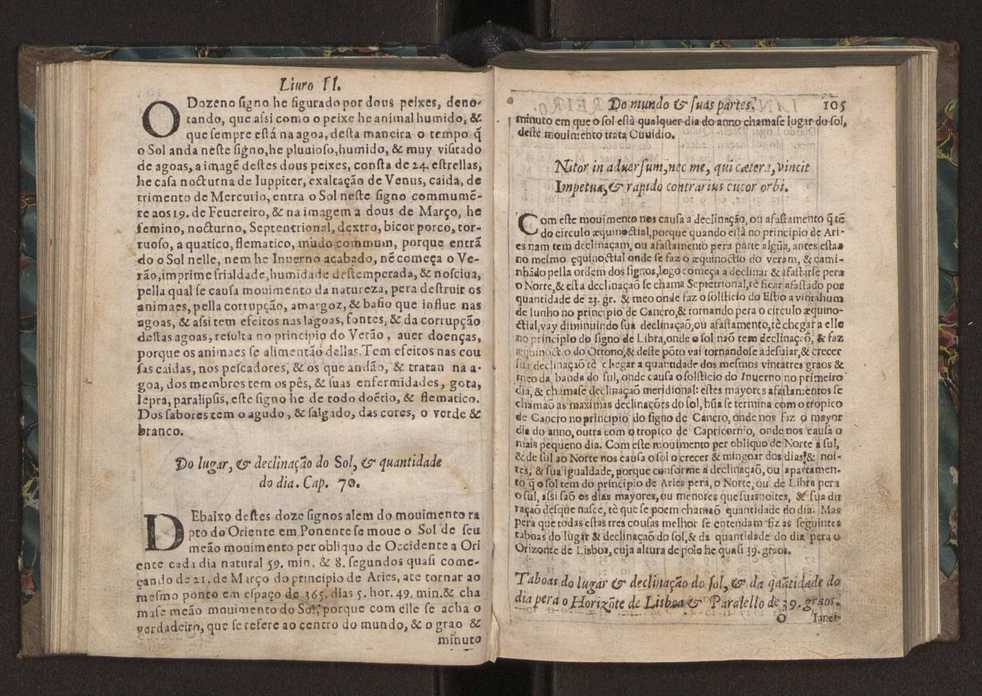 Liuro II.
O Dozeno signo he figurado por dous peixes, deno-
tando, que assi como o peixe he animal humido, &
que sempre está na agoa, desta maneira o tempo q̃
o Sol anda neste signo, he pluuioso, humido, & muy visitado
de agoas, a imagẽ destes dous peixes, consta de 24. estrellas,
he casa nocturna de Iuppiter, exaltação de Venus, caida, de
trimento de Mercurio, entra o Sol neste signo commumẽ-
te aos 19. de Feuereiro, & na imagem a dous de Março, he
femino, nocturno, Septentrional, dextro, bicorporeo, tor-
tuoso, a quatico, flematico, mudo commum, porque entrã
do o Sol nelle, nem he Inuerno acabado, nẽ começa o Ve-
rão, imprime frialdade, humidade destemperada, & nosciua,
pella qual se causa mouimento da natureza, pera destruir os
animaes, pella corrupção, amargoz, & bafio que influe nas
agoas, & assi tem efeitos nas lagoas, fontes, & da corrupção
destas agoas, resulta no principio do Verão, auer doenças,
porque os animaes se alimentão dellas. Tem efeitos nas cou
sas caidas, nos pescadores, & os que andão, & tratan na a-
goa, dos membros tem os pés, & suas enfermidades, gota,
lepra, paralipsis, este signo he de todo doẽtio, & flematico.
Dos sabores tem o agudo, & salgado, das cores, o verde &
branco.
Do lugar, & declinação do Sol, & quantidade
do dia. Cap. 70.
DEbaixo destes doze signos alem do mouimento ra
pto do Oriente em Ponente se moue o Sol de seu
meão mouimento per obliquo de Occidente a Ori
ente cada dia natural 59. min. & 8. segundos quasi come-
çando de 21. de Março do principio de Aries, ate tornar ao
mesmo ponto em espaço de 365. dias 5. hor. 49. min. & cha
mase meão mouimento do Sol, porque com elle se acha o
verdadeiro, que se refere ao centro do mundo, & o grao &
minuto
Do mundo & suas partes. 105
minuto em que o sol está qualquer dia do anno chamase lugar do sol,
deste mouimento trata Ouuidio.
Nitor in aduersum, nec me, qui cætera, vincit
Impetus, & rapido contrarius euehor orbi.
Com este mouimento nos causa a declinação, ou afastamento q̃ tẽ
do circulo æquinoctial, porque quando está no principio de Ari-
es nam tem declinaçam, ou afastamento pera parte algũa, antes estaa
no mesmo equinoctial onde se faz o æquinoctio do veram, & cami-
nhãdo pella ordem dos signos, logo começa a declinar & afastarse pera
o Norte, & esta declinação se chama Septẽtrional, tẽ ficar afastado por
quantidade de 23. gr. & meo onde faz o solsticio do Estio a vint&hum
de Iunho no principio de Cancro, & tornando pera o circulo æquino-
ctial, vay diminuindo sua declinaçaõ, ou afastamento, tẽ chegar a elle
no principio do signo de Libra, onde o sol não tem declinaçẽo, & faz
æquinoctio do Ottono, & deste põto vai tornandose a desuiar, & crecer
sua declinação tẽ chegar a quantidade dos mesmos vintatres graos &
meo da banda do sul, onde causa o solsticio do Inuerno no primeiro
dia, & chamase declinação meridional: estes mayores afastamẽtos se
chamão as maximas declinações do sol, hũa se termina com o tropico
de Cancro no principio do signo de Cancro, onde nos faz o mayor
dia do anno, outra com o tropico de Capricornio, onde nos causa o
mais pequeno dia. Com este mouimento per obliquo de Norte a sul,
& de sul ao Norte nos causa o sol o crecer & mingoar dos dias, & noi-
tes, & sua igualdade, porque conforme a declinação, ou apartamen-
to q̃ o sol tem do principio de Aries pera, o Norte, ou de Libra pera
o sul, assi são os dias mayores, ou menores que suas noites, & sua du
raçaõ desque nasce, tẽ que se poem chamão quantidade do dia. Mas
pera que todas estas tres cousas melhor se entendam fiz as seguintes
taboas do lugar & declinação do sol, & da quantidade do dia pera o
Orizonte de Lisboa, cuja altura de polo he quasi 39. graos.
Taboas do lugar & declinação do sol, & da quãtidade do
dia pera o Horizõte de Lisboa & Paralello de 39. graos.
O Ianei-